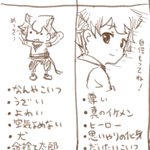 ・なんやこいつ
・うざい
・よわい
・空気よめない
・犬
自信もってね!
・尊い
・真のイケメン
・ヒーロー
・思いやりの化身
・だいたいこいつ